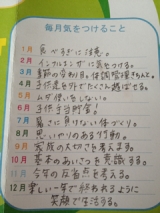 毎月気をつけること
1月 食べすぎに注意。
2月 インフルエンザに気をつける。
3月 季節の変わり目。体調管理きちんと。
4月 子供達を外でたくさん遊ばせる。
5月 ムダ使いをしない。
6月 子供手当貯蓄。
7月 暑さに負けない体づくり。
8月 思いやりのある行動。
9月 家族の大切さを考える。
10月 基本のあいさつを意識する。
11月 今年の反省点を考える。
12月 楽しい一年で終われるように
笑顔で生活する。